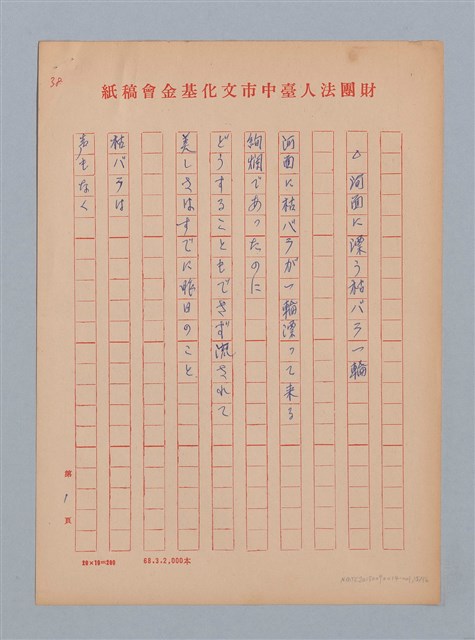 38
財團法人臺中市文化基金會稿紙
△河面に漂う枯バラ一輪
河面に枯バラが一輪漂って来る
絢爛であったのに
どうすることもできず流されて
美しさはすでに昨日のこと
枯バラは
声もなく
第 1 頁
20×10=200
68.3.2,000本